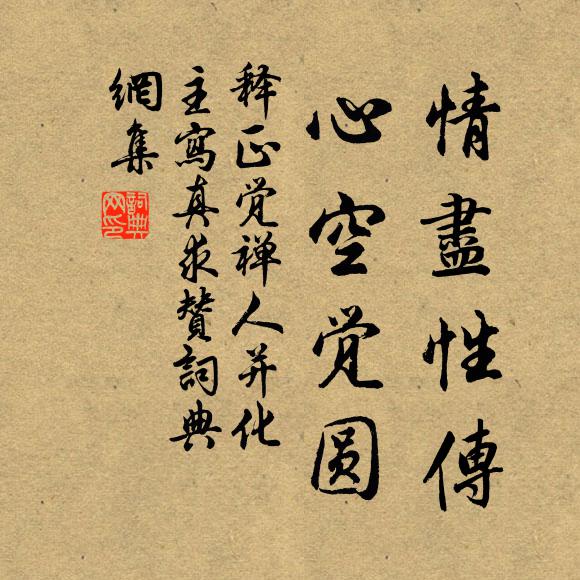 情盡性傳
心空觉圆
释正觉禅人并化
主寫真求赞詞典
網集
詞典網印